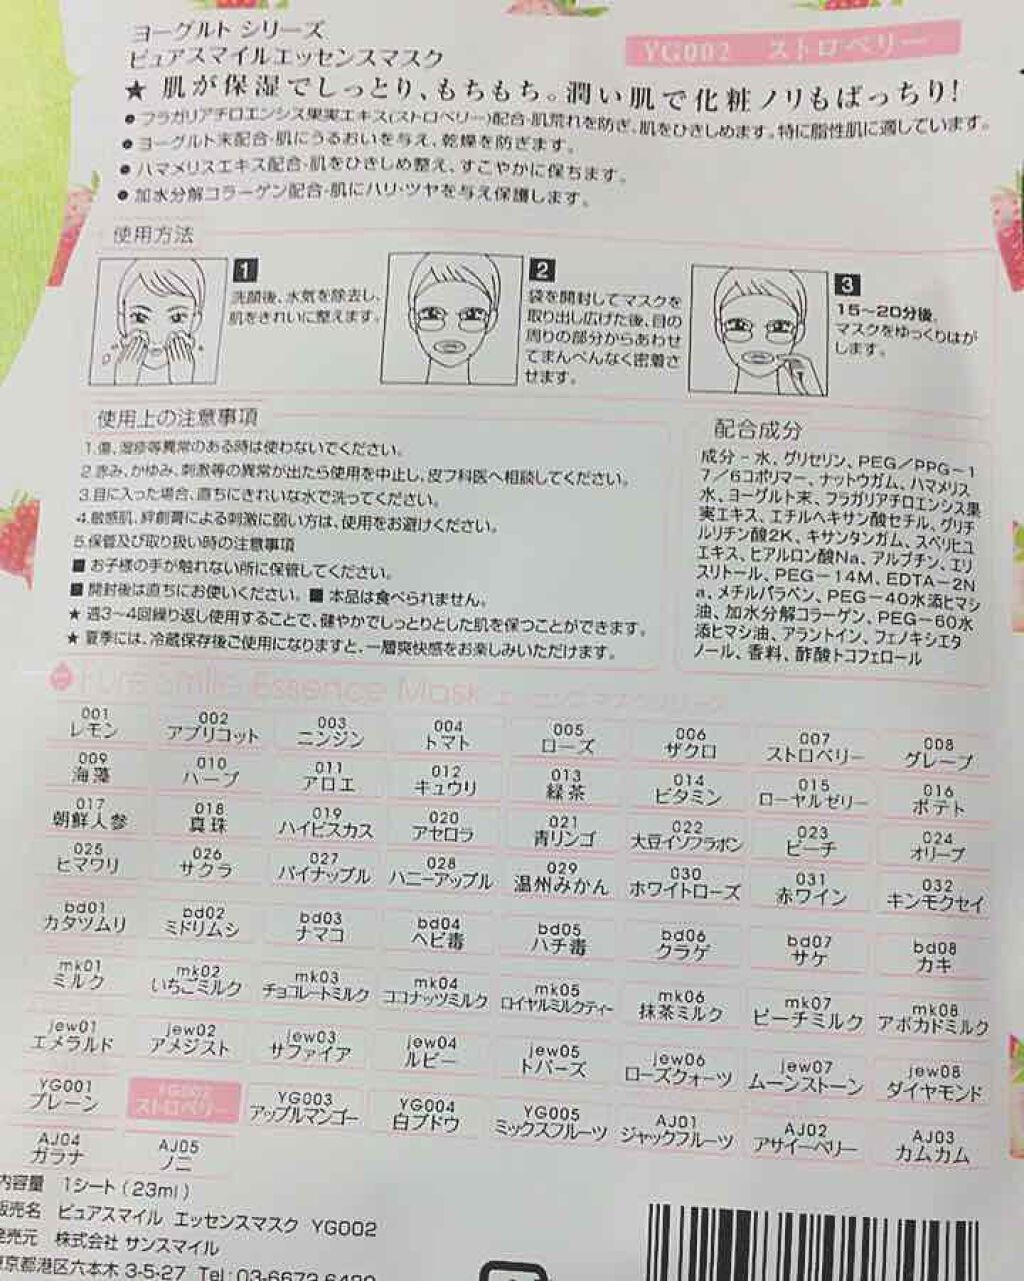 ヨーグルト シリーズ
ピュアスマイルエッセンスマスク
YG002 ストロベリー
★ 肌が保湿でしっとり、もちもち。潤い肌で化粧ノリもばっちり!
● フラガリアチロエンシス果実エキス(ストロベリー)配合-肌荒れを防ぎ、肌をひきしめます。特に脂性肌に適しています。
● ヨーグルト末配合-肌にうるおいを与え、乾燥を防ぎます。
● ハマメリスエキス配合-肌をひきしめ整え、すこやかに保ちます。
● 加水分解コラーゲン配合-肌にハリ・ツヤを与え保護します。
使用方法
1
洗顔後、水気を除去し、
肌をきれいに整えます。
2
袋を開封してマスクを
取り出し広げた後、目の
周りの部分からあわせ
てまんべんなく密着さ
せます。
3
15〜20分後、
マスクをゆっくりはが
します。
使用上の注意事項
1.傷、湿疹等異常のある時は使わないでください。
2.赤み、かゆみ、刺激等の異常が出たら使用を中止し、皮フ科医へ相談してください。
3.目に入った場合、直ちにきれいな水で洗ってください。
4.敏感肌、絆創膏による刺激に弱い方は、使用をお避けください。
5.保管及び取り扱い時の注意事項
■ お子様の手が触れない所に保管してください。
■ 開封後は直ちにお使いください。■ 本品は食べられません。
★ 週3〜4回繰り返し使用することで、健やかでしっとりとした肌を保つことができます。
★ 夏季には、冷蔵保存後ご使用になりますと、一層爽快感をお楽しみいただけます。
配合成分
成分 - 水、グリセリン、PEG/PPG-1
7/6コポリマー、ナットウガム、ハマメリス
水、ヨーグルト末、フラガリアチロエンシス果
実エキス、エチルヘキサン酸セチル、グリチ
ルリチン酸2K、キサンタンガム、スベリヒユ
エキス、ヒアルロン酸Na、アルブチン、エリ
スリトール、PEG-14M、EDTA-2N
a、メチルパラベン、PEG-40水添ヒマシ
油、加水分解コラーゲン、PEG-60水
添ヒマシ油、アラントイン、フェノキシエタ
ノール、香料、酢酸トコフェロール
Pure Smile Essence Mask
001 002 003 004 005 006 007 008
レモン アプリコット ニンジン トマト ローズ ザクロ ストロベリー グレープ
009 010 011 012 013 014 015 016
海藻 ハーブ アロエ キュウリ 緑茶 ビタミン ローヤルゼリー ポテト
017 018 019 020 021 022 023 024
朝鮮人参 真珠 ハイビスカス アセロラ 青リンゴ 大豆イソフラボン ピーチ オリーブ
025 026 027 028 029 030 031 032
ヒマワリ サクラ パイナップル ハニーアップル 温州みかん ホワイトローズ 赤ワイン キンモクセイ
bd01 bd02 bd03 bd04 bd05 bd06 bd07 bd08
カタツムリ ミドリムシ ナマコ ヘビ毒 ハチ毒 クラゲ サケ カキ
mk01 mk02 mk03 mk04 mk05 mk06 mk07 mk08
ミルク いちごミルク チョコレートミルク ココナッツミルク ロイヤルミルクティー 抹茶ミルク ピーチミルク アボカドミルク
jew01 jew02 jew03 jew04 jew05 jew06 jew07 jew08
エメラルド アメジスト サファイア ルビー トパーズ ローズクォーツ ムーンストーン ダイヤモンド
YG001 YG002 YG003 YG004 YG005 AJ01 AJ02 AJ03
プレーン ストロベリー アップルマンゴー 白ブドウ ミックスフルーツ ジャックフルーツ アサイーベリー カムカム
AJ04 AJ05
ガラナ ノニ
内容量 1シート(23ml)
販売名 ピュアスマイル エッセンスマスク YG002
発売元 株式会社 サンスマイル
東京都港区六本木 3-5-27 Tel:03-6673